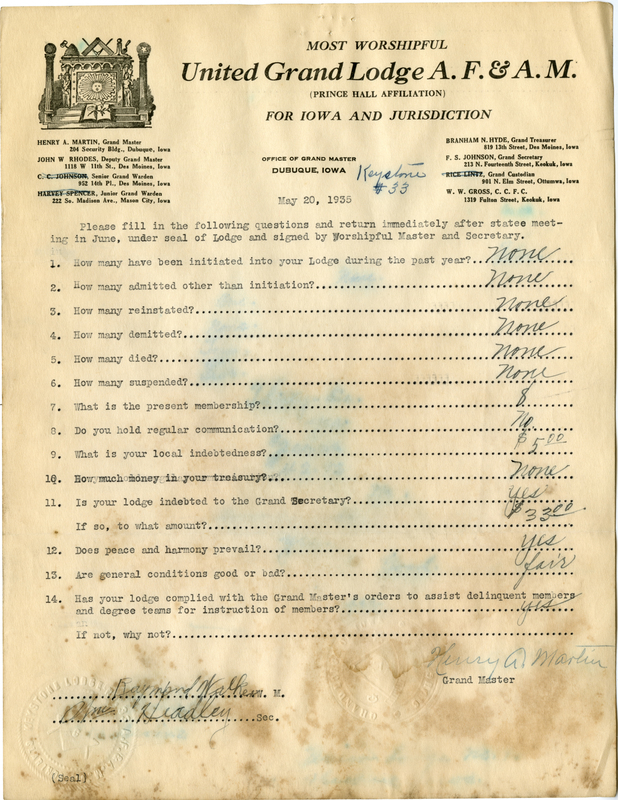 MOST WORSHIPFUL
United Grand Lodge A. F. & A. M.
(PRINCE HALL AFFILIATION)
FOR IOWA AND JURISDICTION
HENRY A. MARTIN, Grand Master
204 Security Bldg., Dubuque, Iowa
JOHN W RHODES, Deputy Grand Master
1118 W 11th St., Des Moines, Iowa
C. C. JOHNSON, Senior Grand Warden
952 14th Pl., Des Moines, Iowa
HARVEY SPENCER, Junior Grand Warden
222 So. Madison Ave., Mason City, Iowa
OFFICE OF GRAND MASTER
DUBUQUE, IOWA
Keystone
#33
BRANHAM N. HYDE, Grand Treasurer
819 13th Street, Des Moines, Iowa
F. S. JOHNSON, Grand Secretary
213 N. Fourteenth Street, Keokuk, Iowa
RICE LINTZ, Grand Custodian
901 N. Elm Street, Ottumwa, Iowa
W. W. GROSS, C. C. F. C.
1319 Fulton Street, Keokuk, Iowa
May 20, 1935
Please fill in the following questions and return immediately after statee meet-
ing in June, under seal of Lodge and signed by Worshipful Master and Secretary.
1. How many have been initiated into your Lodge during the past year?.. None
2. How many admitted other than initiation?.... None
3. How many reinstated?.... None
4. How many demitted?.... None
5. How many died?.... None
6. How many suspended?.... None
7. What is the present membership?.... 8
8. Do you hold regular communication?.... No.
9. What is your local indebtedness?.... $5.00
10. How much money in your treasury?.... None
11. Is your lodge indebted to the Grand Secretary?.... Yes
If so, to what amount?.... $33.00
12. Does peace and harmony prevail?.... yes
13. Are general conditions good or bad?.... fair
14. Has your lodge complied with the Grand Master's orders to assist delinquent members
and degree teams for instruction of members?.... yes
If not, why not?....
Henry A Martin
Grand Master
Raymond Walker W. M.
Headley Sec.
(Seal)